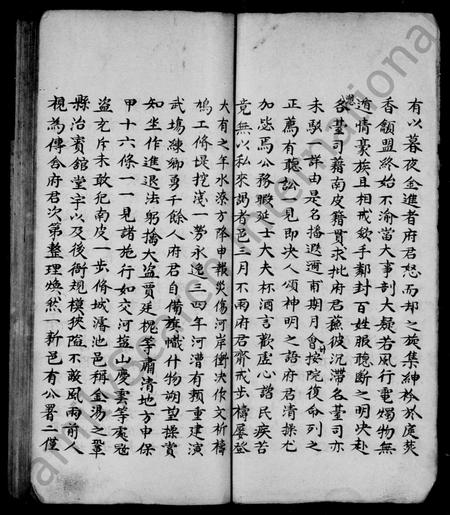 有以暮夜金進者府君怒而却之旋集紳衿於庭焚
香籲盟終始不渝當大事剖大疑若風行電燭物無
遁情豪族且相戒歛手鄰封百姓服聽斷之明決赴
總
欲臺司藉南皮籍貫求批府君蔬彼沉滯名臺司亦
未馭一詳由是名播遐邇甫期月會按院復命列之
正薦有聽訟一見即決人頌神明之語府君清操尤
加毖焉公務暇延士大夫杯酒言歡虛心諮民疾苦
竟無以私來謁者邑三月不雨府君齋戒步禱屢登
大有之年水潦方降申報災傷河岸衝決作文祈禱
鳩工修堤挖淺一勞永逸三四年河漕有賴重建演
武場練鄉勇千餘人府君自備旗幟什物朔望操賞
知坐作進退法躬擒大盜賈廷槐等肅清地方申保
甲十六條一一見諸施行如交河鹽山慶雲等處強
盜充斥未敢犯南皮一步修城濬池邑稱金湯之鞏
縣治賓館堂宇以及後衙規模狹陋不蔽風雨前人
視為傳舍府君次第整理煥然一新邑有公署二僅